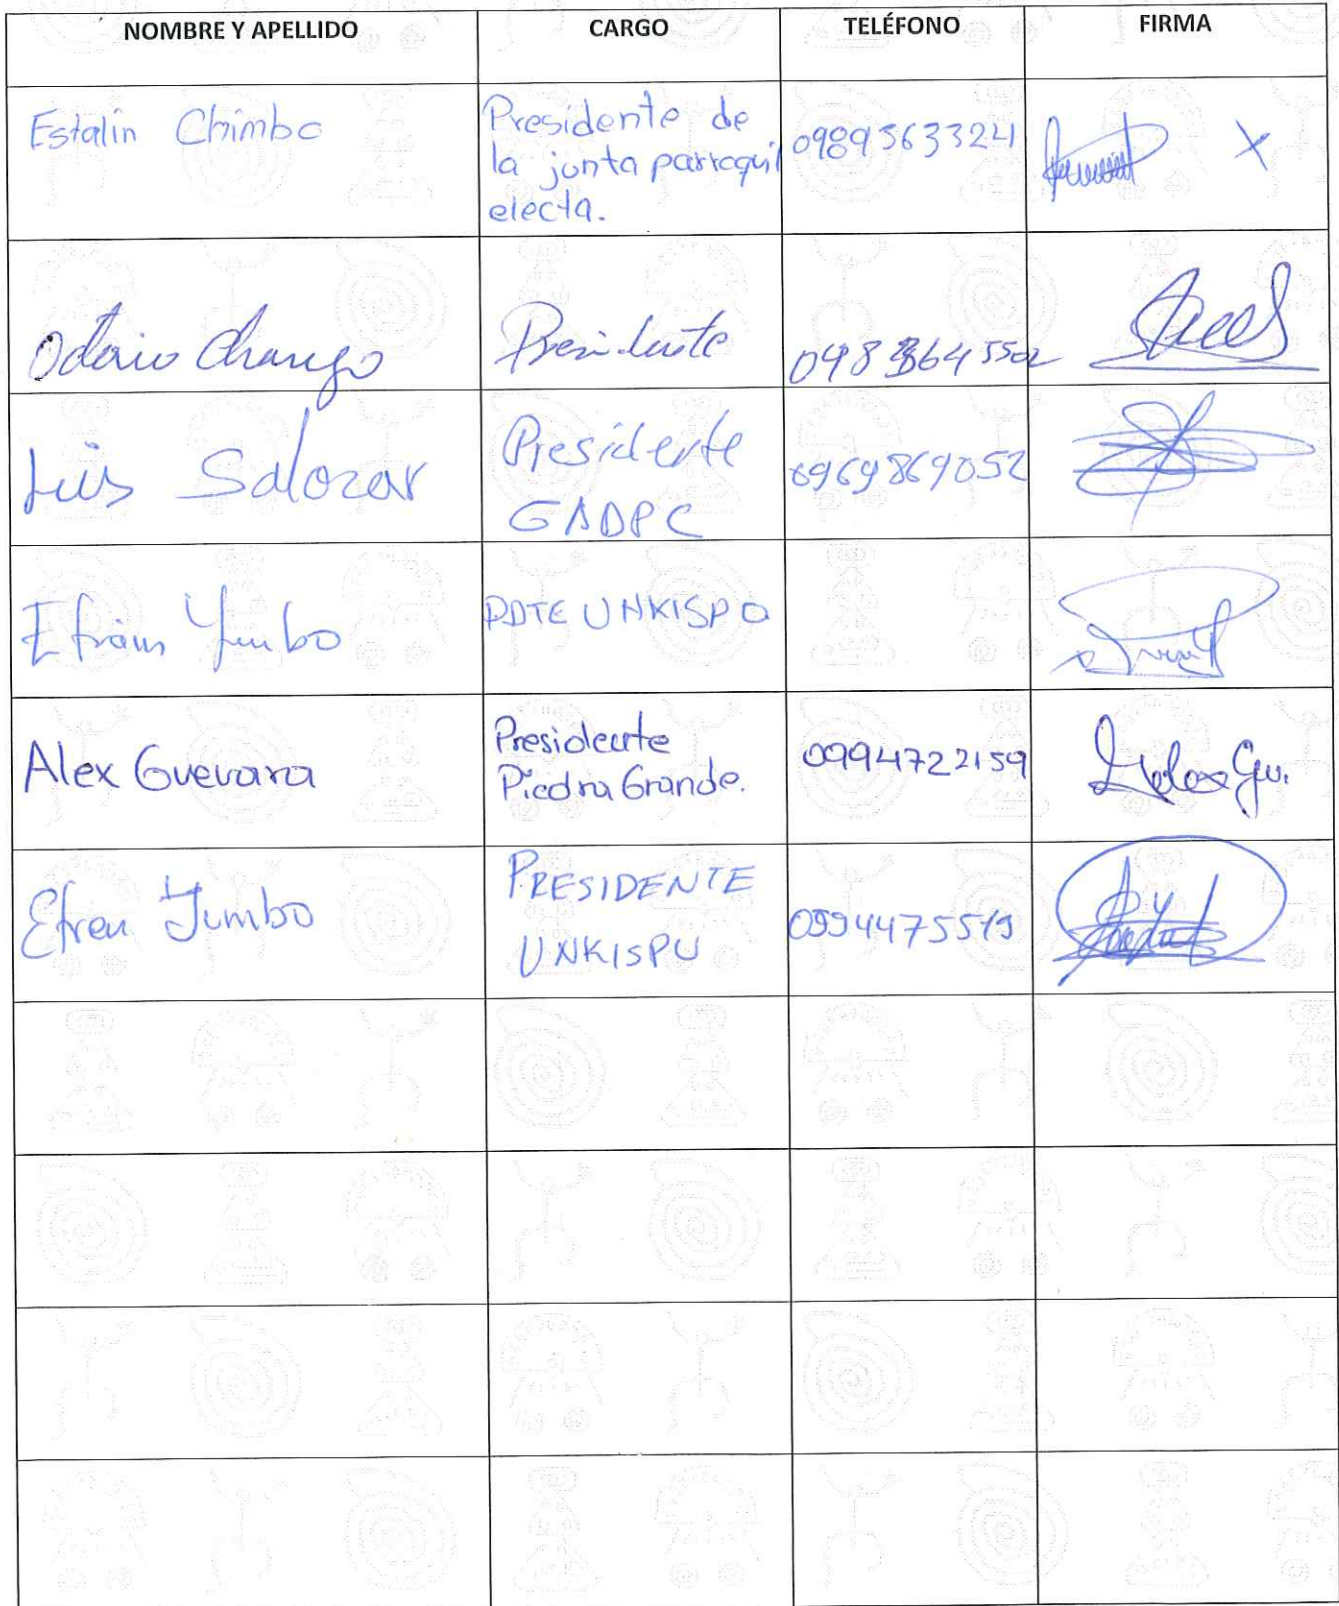 NOMBRE Y APELLIDO CARGO TELÉFONO FIRMA
Estalin Chimbo Presidente de la junta parroquil electa. 0989563324 X
Odario Chango Presidente
Luis Salazar Presidente GADPC 0969869052
Efraín Yumbo PDTE UNKISPU
Alex Guevara Presidente Piedra Grande. 0994722159
Efren Yumbo PRESIDENTE UNKISPU 0994475519